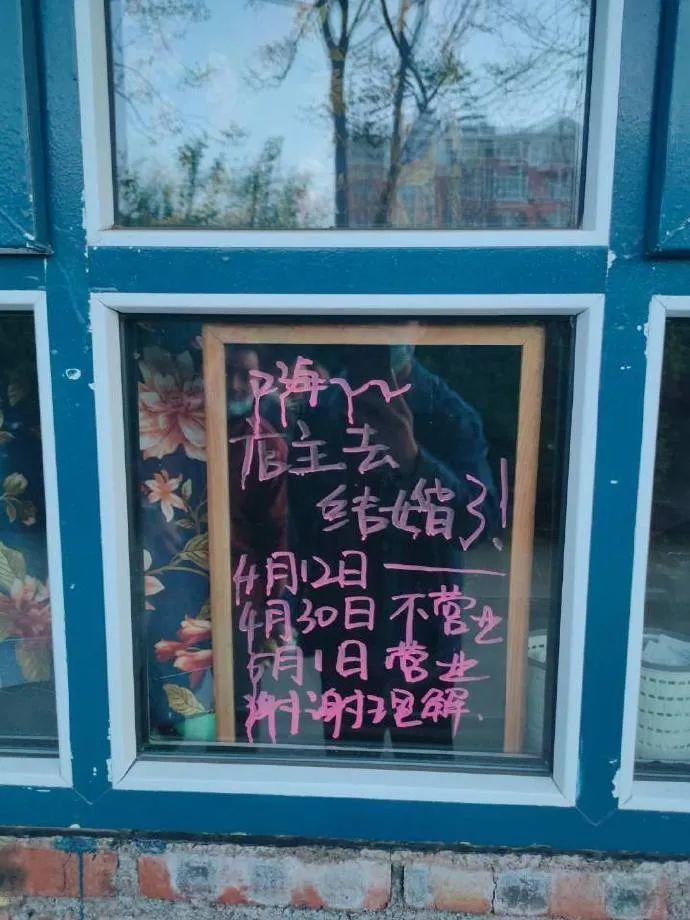 嗨~~
店主去
结婚了!
4月12日——
4月30日 不营业
5月1日 营业
谢谢理解.